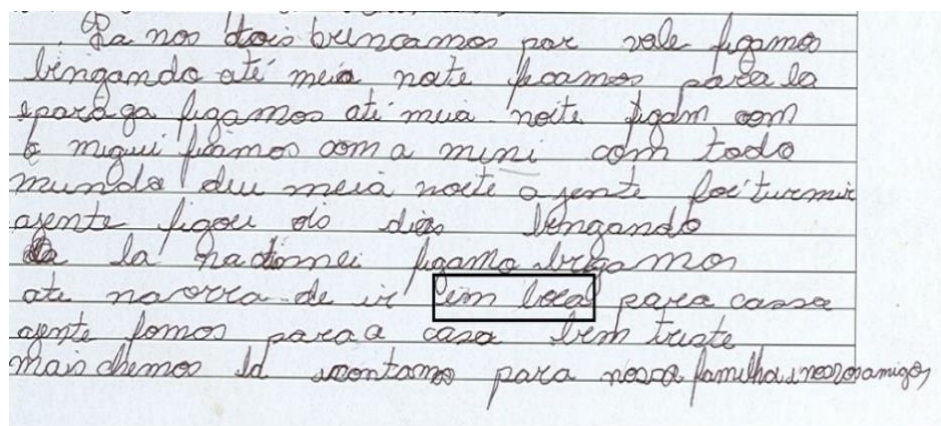 La nos dois brincamos por vale figamos
bingando até meia noite ficamos para la
epara ga figamos até meia noite figam com
e miqui ficamos com a mini com todo
mundo deu meia noite agente foi turmir
agente figou dois dias bingando
la figamo brigamos
ate na orra de ir em local para cassa
agente fomos para a casa bem triste
mais chemos la contamos para nossa familha e nosos amigos